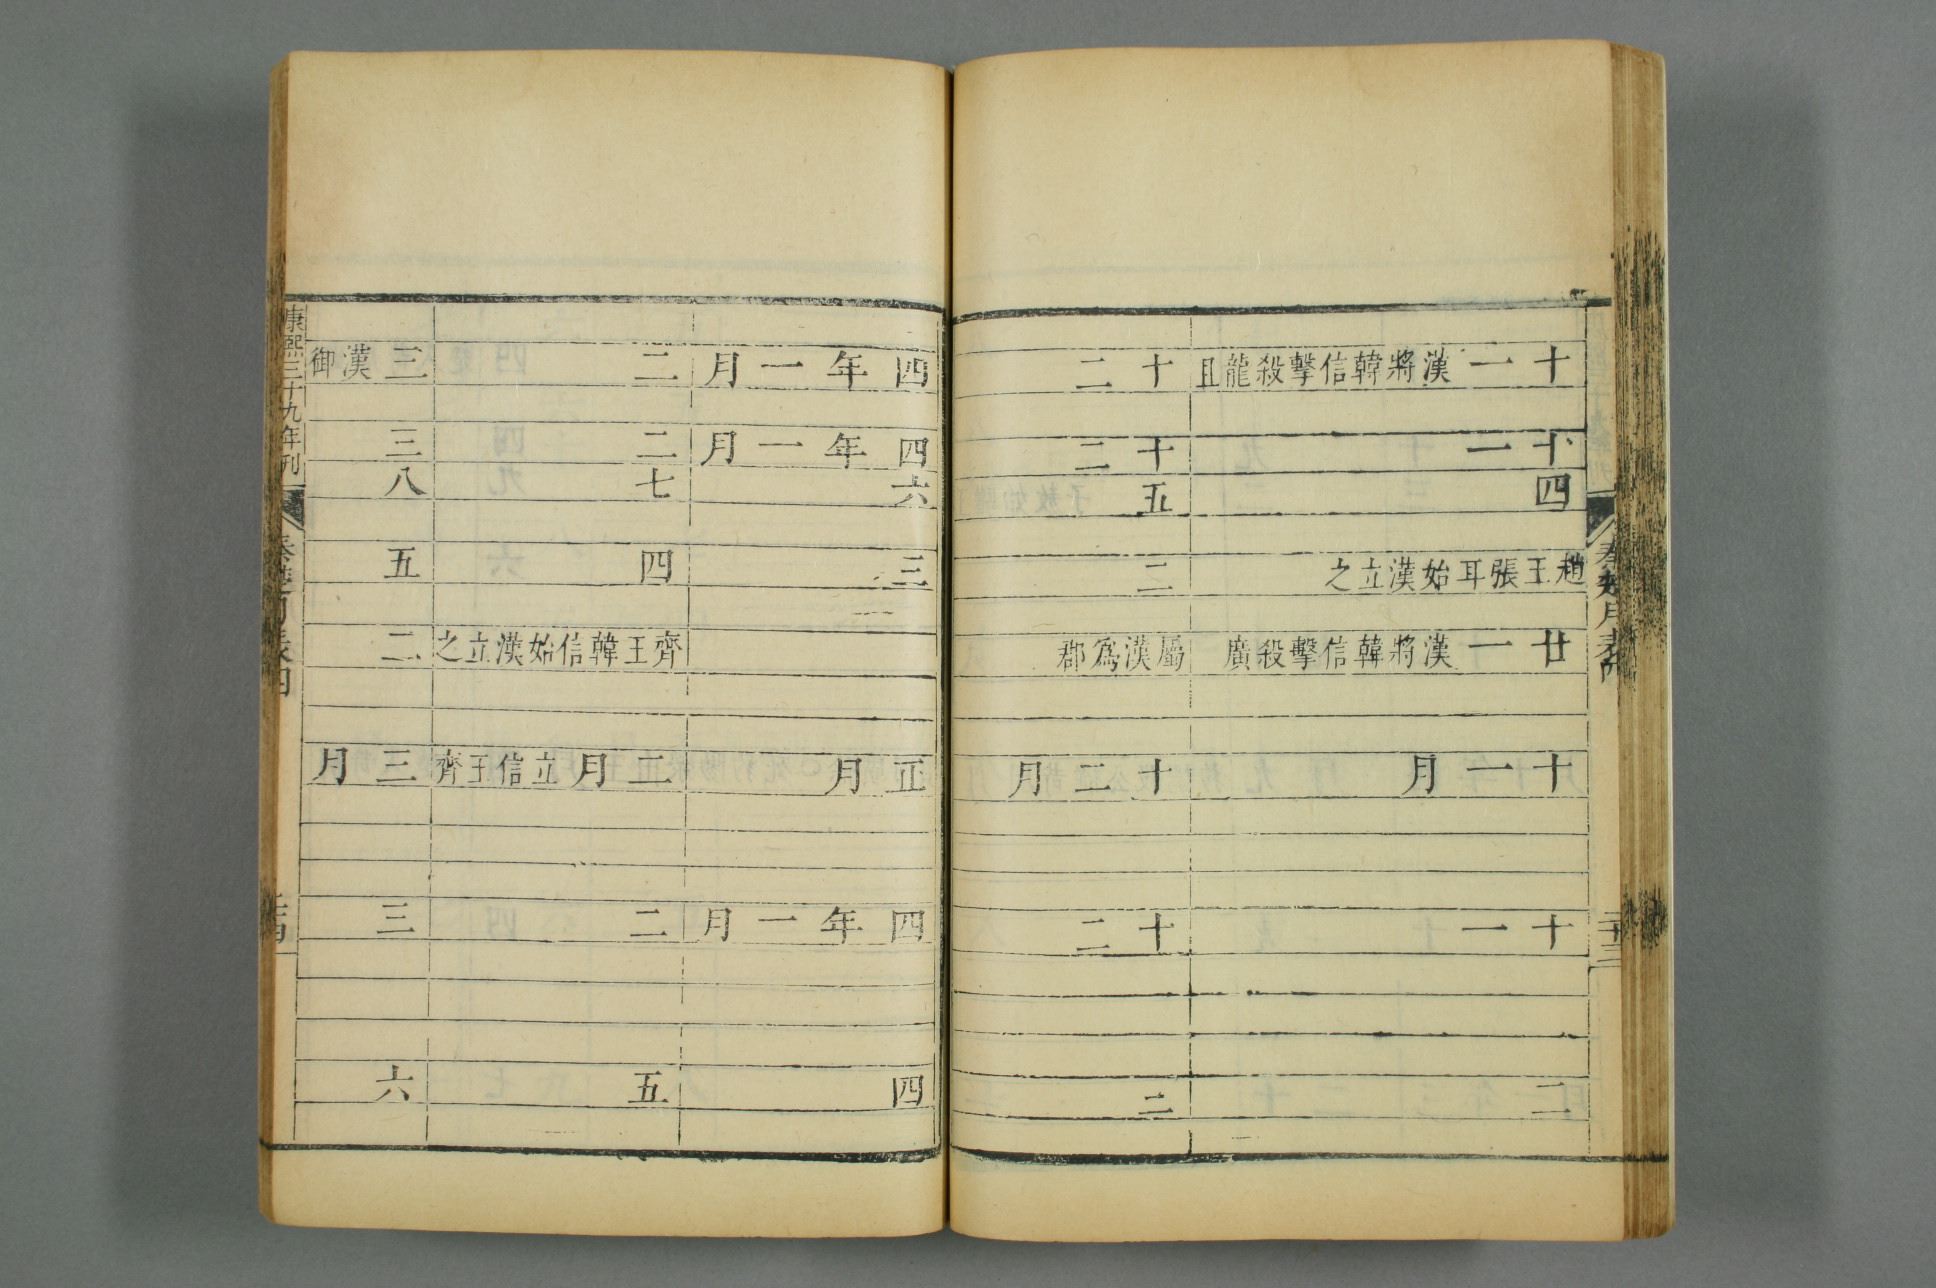 秦楚月表四
二十三
十一漢將韓信擊殺龍且 十二
十一 十二
四 五
趙王張耳始漢立之 二
廿一漢將韓信擊殺廣 屬漢爲郡
十一月 十二月
十一 十二
二 三
四年一月 二 三漢御
四年一月 二 三
六 七 八
三 四 五
齊王韓信始漢立之 二
正月 二月立信王齊 三月
四年一月 二 三
四 五 六
康熙三十九年刊
秦楚月表四